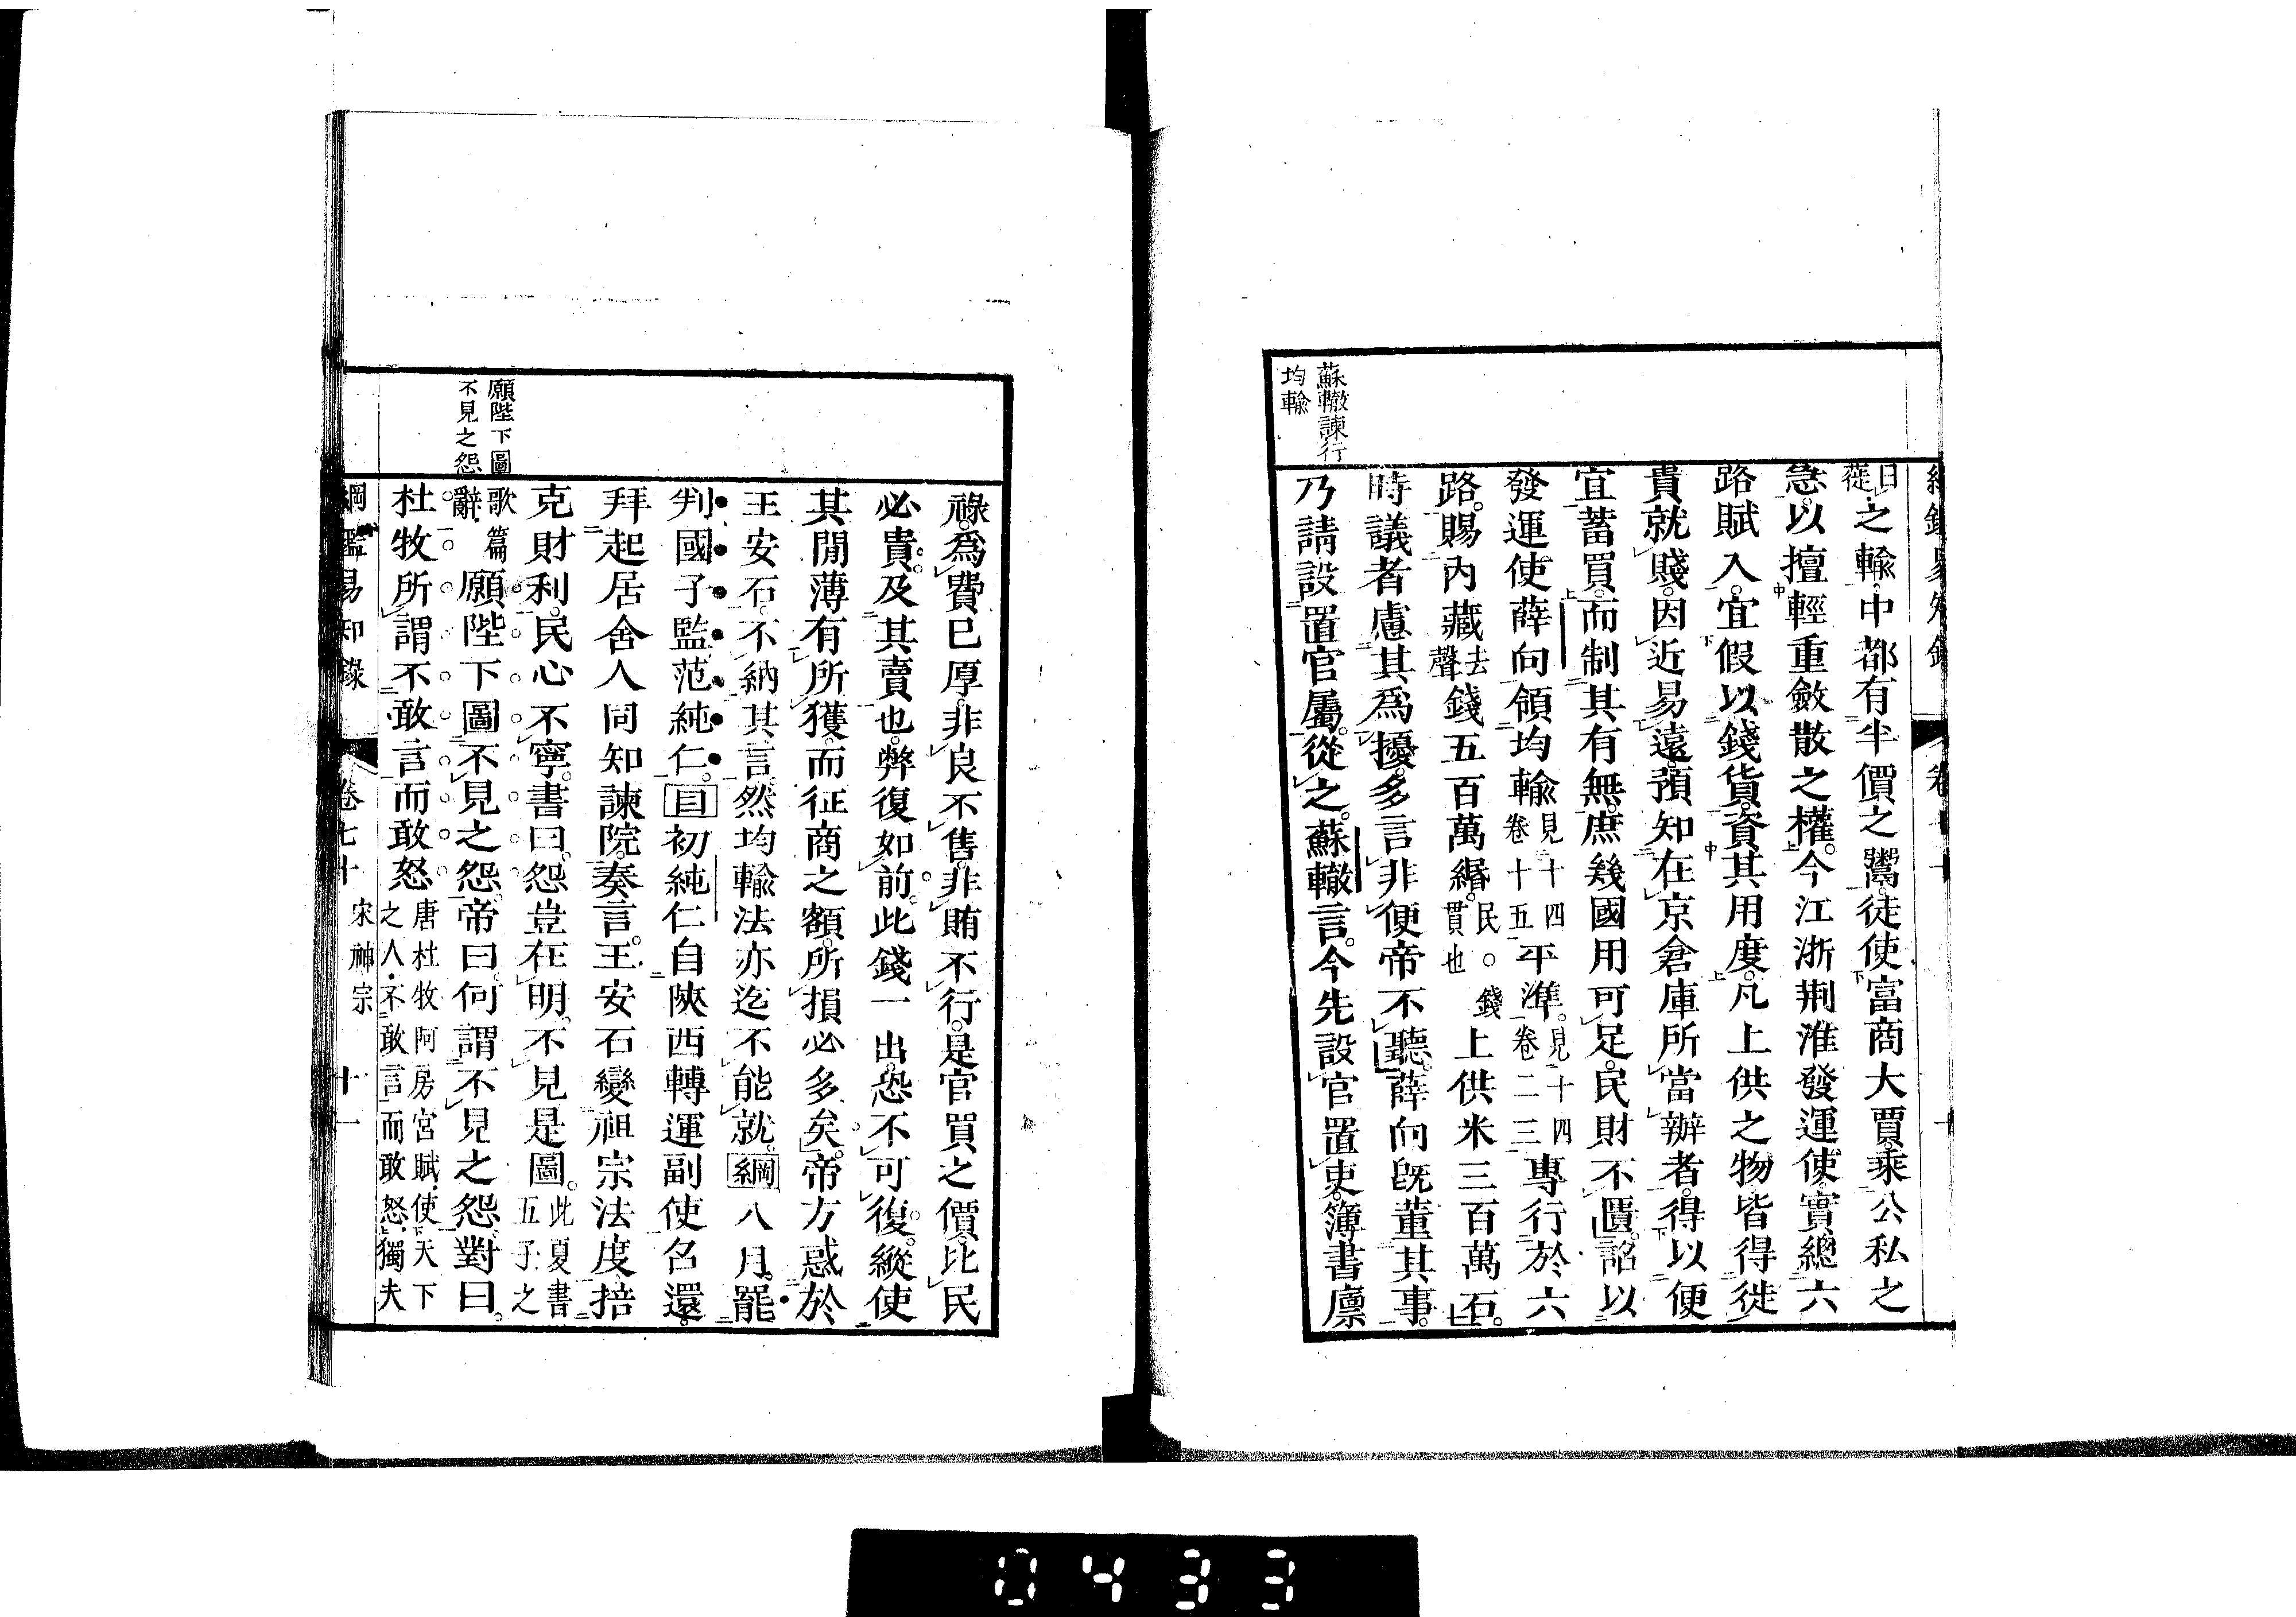 蘇轍諫行
均輸
日
蓰之輸中都有半價之鬻徒使富商大賈乘公私之
急以擅輕重斂散之權今江浙荆淮發運使實總六
路賦入宜假以錢貨資其用度凡上供之物皆得徙
貴就賤因近易遠預知在京倉庫所當辦者得以便
宜蓄買而制其有無庶幾國用可足民財不匱詔以
發運使薛向領均輸見十四卷十五平準見十四卷二三專行於六
路賜內藏去聲錢五百萬緡民○錢貫也上供米三百萬石
時議者慮其爲擾多言非便帝不聽薛向旣董其事
乃請設置官屬從之蘇轍言今先設官置吏簿書廩
祿爲費已厚非良不售非賄不行是官買之價比民
必貴及其賣也弊復如前此錢一出恐不可復縱使
其閒薄有所獲而征商之額所損必多矣帝方惑於
王安石不納其言然均輸法亦迄不能就綱八月罷
判國子監范純仁目初純仁自陝西轉運副使召還
拜起居舍人同知諫院奏言王安石變祖宗法度掊
克財利民心不寧書曰怨豈在明不見是圖此夏書五子之
歌篇辭願陛下圖不見之怨帝曰何謂不見之怨對曰
杜牧所謂不敢言而敢怒唐杜牧阿房宮賦使天下之人不敢言而敢怒獨夫
願陛下圖
不見之怨
綱鑑易知錄 卷七十 宋神宗 十一